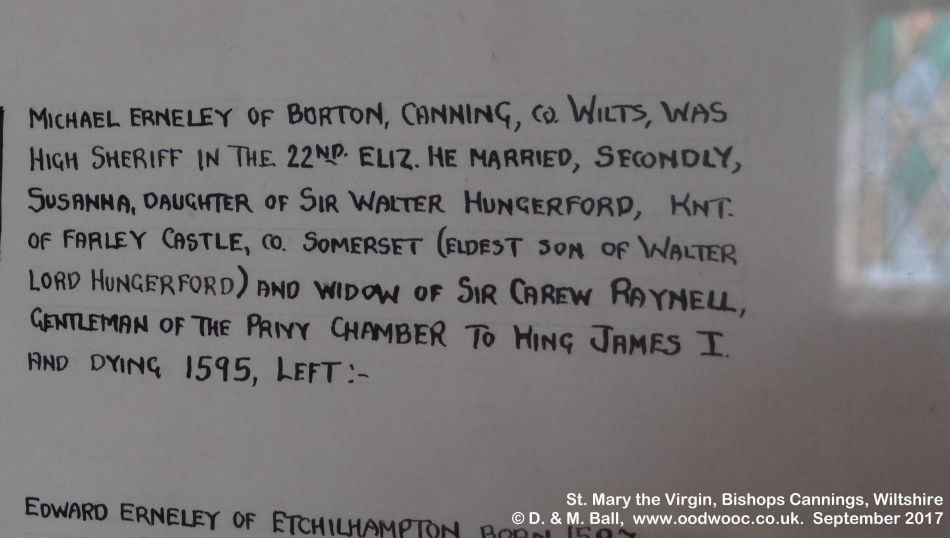 MICHAEL ERNELEY OF BORTON, CANNING, CO. WILTS, WAS
HIGH SHERIFF IN THE 22ND. ELIZ. HE MARRIED, SECONDLY,
SUSANNA, DAUGHTER OF SIR WALTER HUNGERFORD, KNT.
OF FARLEY CASTLE, CO. SOMERSET (ELDEST SON OF WALTER
LORD HUNGERFORD) AND WIDOW OF SIR CAREW RAYNELL,
GENTLEMAN OF THE PRIVY CHAMBER TO KING JAMES I.
AND DYING 1595, LEFT:-
EDWARD ERNELEY OF ETCHILHAMPTON BORN
St. Mary the Virgin, Bishops Cannings, Wiltshire
© D. & M. Ball, www.oodwooc.co.uk. September 2017